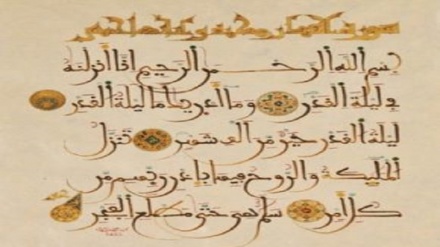 بسم الله الرحمن الرحيم انا انزلنه
في ليلة القدر وما ادريك ما ليلة القدر
ليلة القدر خير من الف شهر تنزل
الملئكة والروح فيها باذن ربهم من
كل امر سلم هي حتى مطلع الفجر